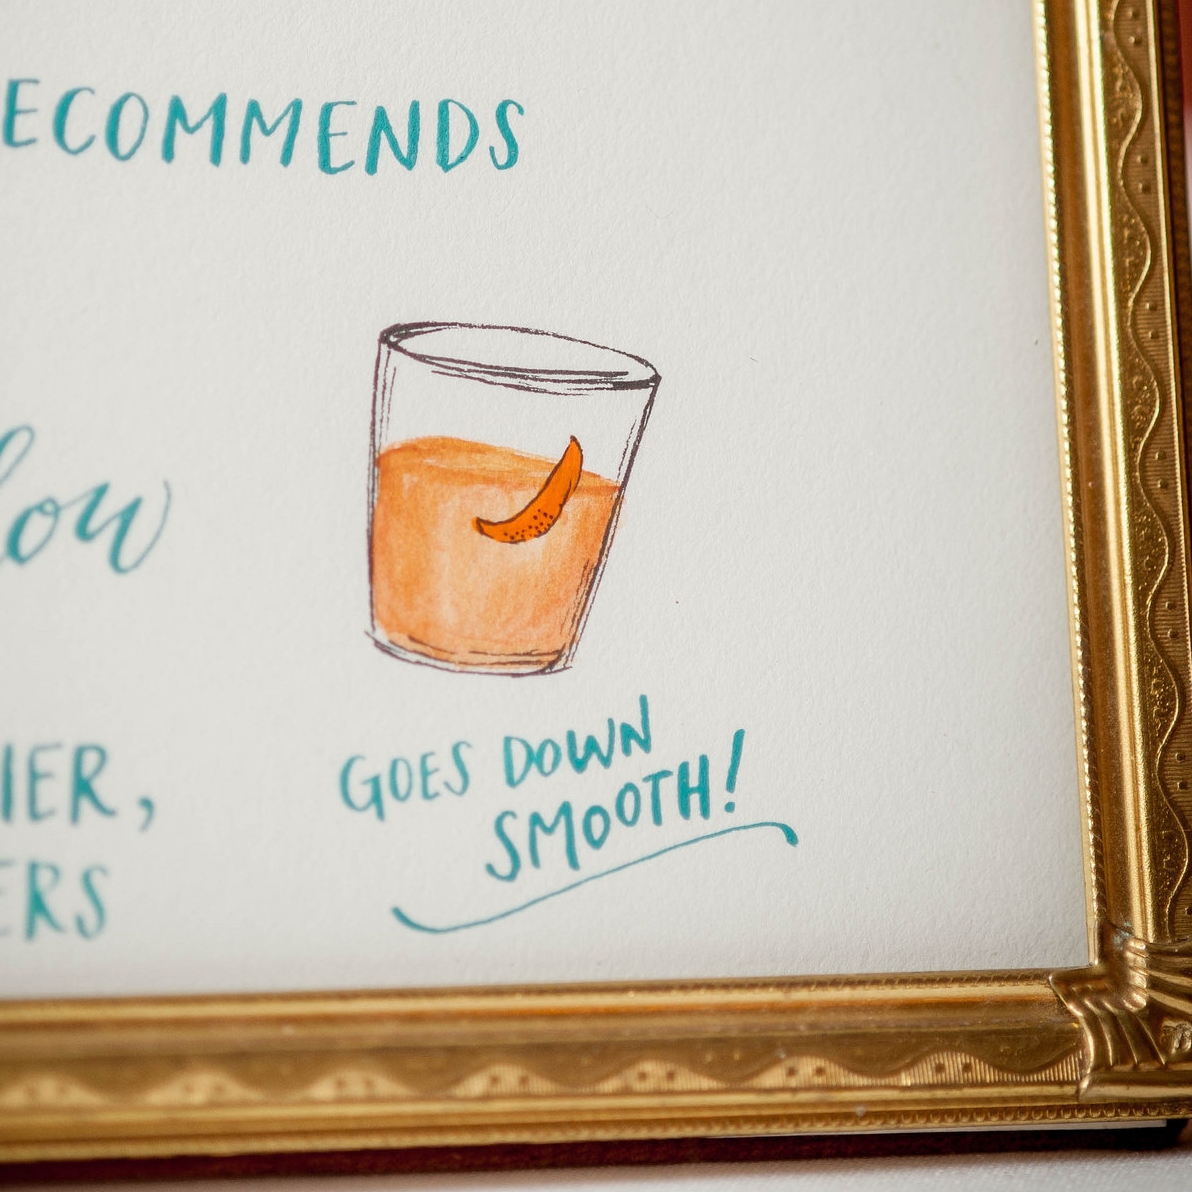 ECOMMENDS
low
IER,
ERS
GOES DOWN
SMOOTH!